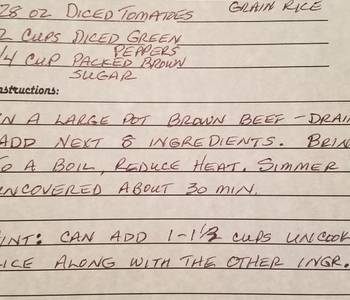 28 OZ DICED TOMATOES GRAIN RICE
2 CUPS DICED GREEN
PEPPERS
1/4 CUP PACKED BROWN
SUGAR
nstructions:
N A LARGE POT BROWN BEEF - DRAIN
ADD NEXT 8 INGREDIENTS. BRIN
TO A BOIL, REDUCE HEAT. SIMMER
UNCOVERED ABOUT 30 MIN.
INT: CAN ADD 1-1 1/3 CUPS UNCOOK
ICE ALONG WITH THE OTHER INGR.